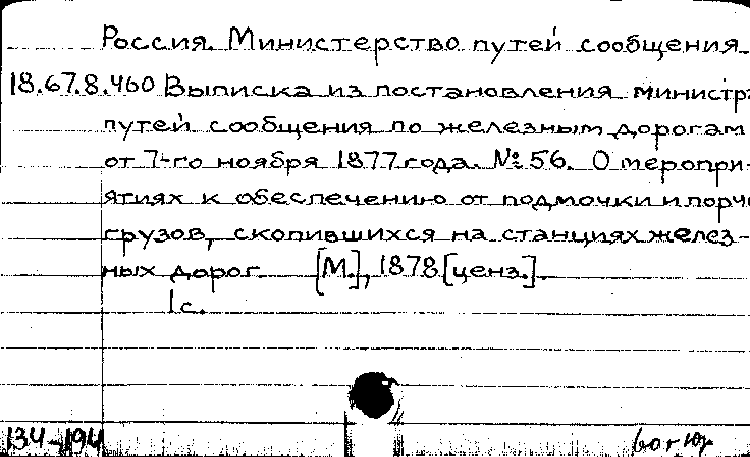 Россия. Министерство путей сообщения
18.67.8.460 Выписка из постановления министра
путей сообщения по железным дорогам
от 7-го ноября 1877 года. № 56. О меропри-
ятиях к обеспечению от подмочки и порчи
грузов, скопившихся на станциях желез-
ных дорог [М.], 1878 [ценз.].
1 с.
134-194